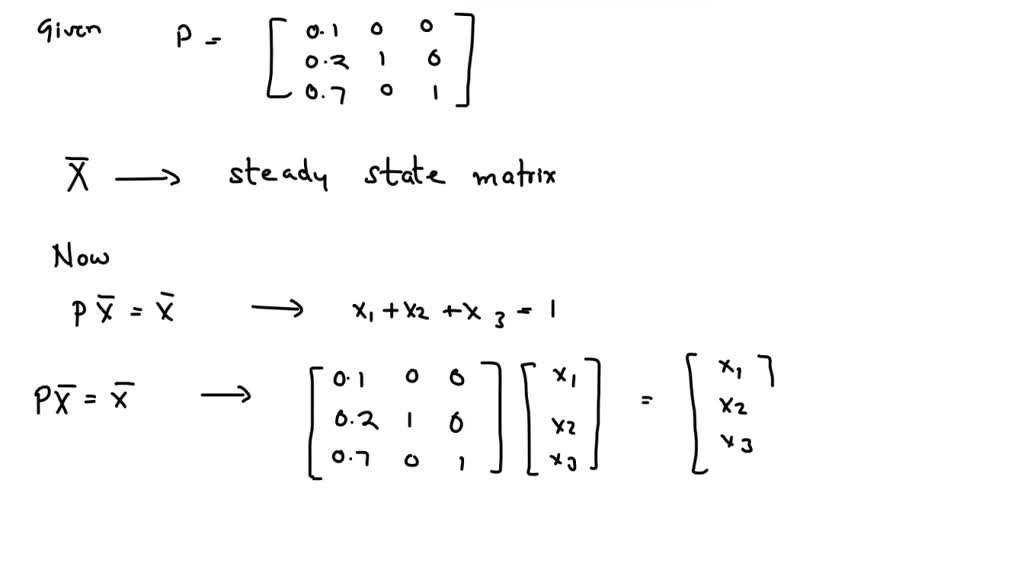 Given P = [ 0.1 0 0
0.2 1 0
0.7 0 1 ]
X̄ ⟶ steady state matrix
Now
P X̄ = X̄ ⟶ x₁ + x₂ + x₃ = 1
PX̄ = X̄ ⟶ [ 0.1 0 0 ] [ x₁ ] = [ x₁ ]
0.2 1 0 x₂ x₂
0.7 0 1 x₃ x₃